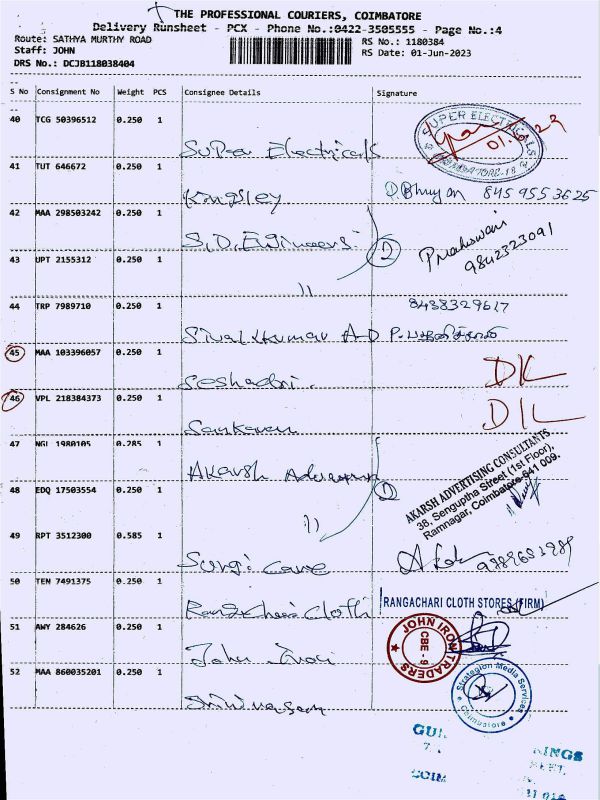 THE PROFESSIONAL COURIERS, COIMBATORE
Delivery Runsheet - PCX - Phone No.:0422-3505555 - Page No.:4
Route: SATHYA MURTHY ROAD
RS No.: 1180384
Staff: JOHN
RS Date: 01-Jun-2023
DRS No.: DCJB118038404
S No Consignment No Weight PCS Consignee Details Signature
40 TCG 50396512 0.250 1
Super Electricals
SUPER ELECTRICALS
01.6.23
COIMBATORE-18
41 TUT 646672 0.250 1
Kingsley D. Bhuyan 845 955 3625
42 MAA 298503242 0.250 1
S.D. Engineers 2
9842323091
43 UPT 2155312 0.250 1
"
44 TRP 7989710 0.250 1
8438329617
Sivakumar A-D
45 MAA 103396057 0.250 1
Seshadri. DK
46 VPL 218384373 0.250 1
Sankaran DK
47 NGL 1980105 0.285 1
Akarsh
AKARSH ADVERTISING CONSULTANTS
38, Senguptha Street (1st Floor),
Ramnagar, Coimbatore-641 009.
48 EDQ 17503554 0.250 1
"
49 RPT 3512300 0.585 1
Surgi Care
50 TEN 7491375 0.250 1
Rangachari Cloth RANGACHARI CLOTH STORES (FIRM)
51 AWY 284626 0.250 1
John Iron
JOHN IRON TRADERS
CBE - 9
52 MAA 860035201 0.250 1
Srinivasan
Strategion Media Services
Coimbatore